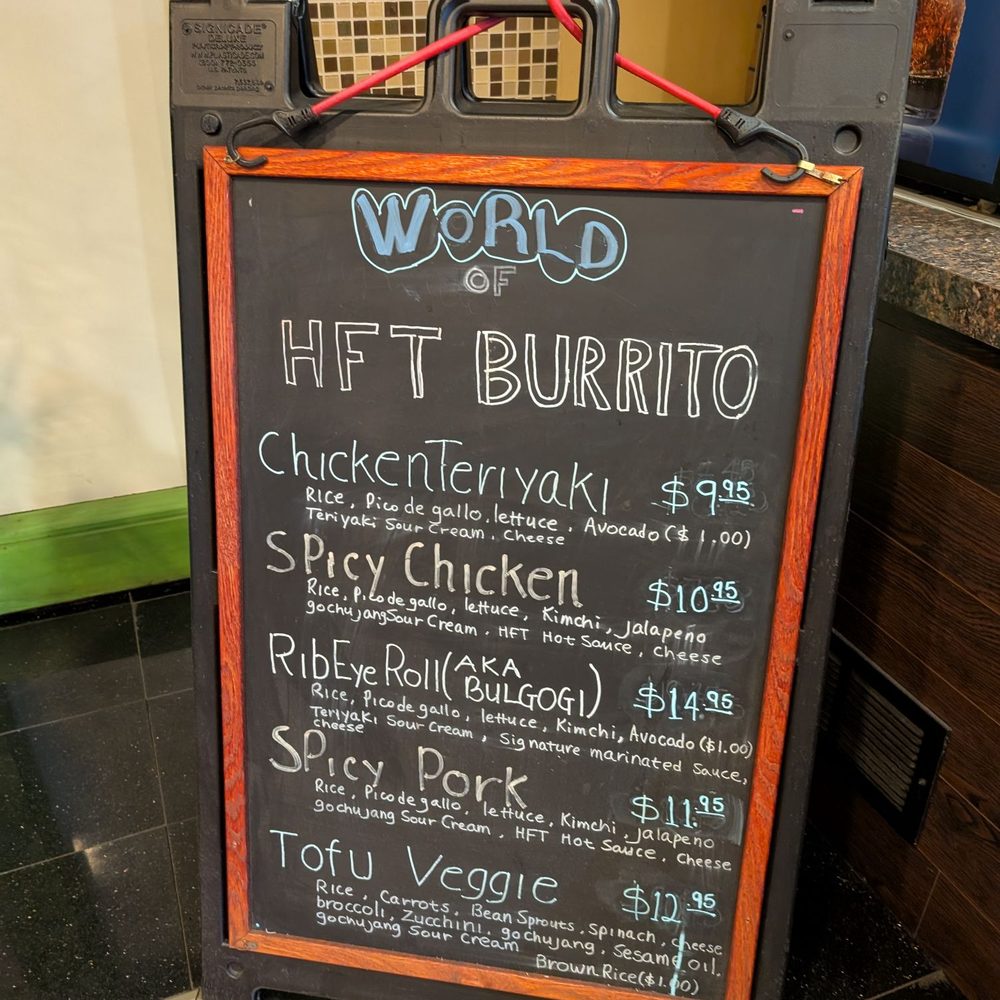 SIGNICADE®
DELUXE
WWW.PLASTICADE.COM
U.S. PATENTS
WORLD
OF
HFT BURRITO
Chicken Teriyaki $9.95
Rice, Pico de gallo, lettuce, Avocado ($1.00)
Teriyaki Sour Cream, Cheese
SPicy Chicken $10.95
Rice, Pico de gallo, lettuce, Kimchi, jalapeno
gochujang Sour Cream, HFT Hot Sauce, Cheese
RibEye Roll (AKA BULGOGI) $14.95
Rice, Pico de gallo, lettuce, Kimchi, Avocado ($1.00)
Teriyaki Sour Cream, Signature marinated Sauce,
cheese
SPicy Pork $11.95
Rice, Pico de gallo, lettuce, Kimchi, jalapeno
gochujang Sour Cream, HFT Hot Sauce, Cheese
Tofu Veggie $12.95
Rice, Carrots, Bean Sprouts, Spinach, cheese
broccoli, Zucchini, gochujang, Sesame oil,
gochujang Sour Cream
Brown Rice ($1.00)